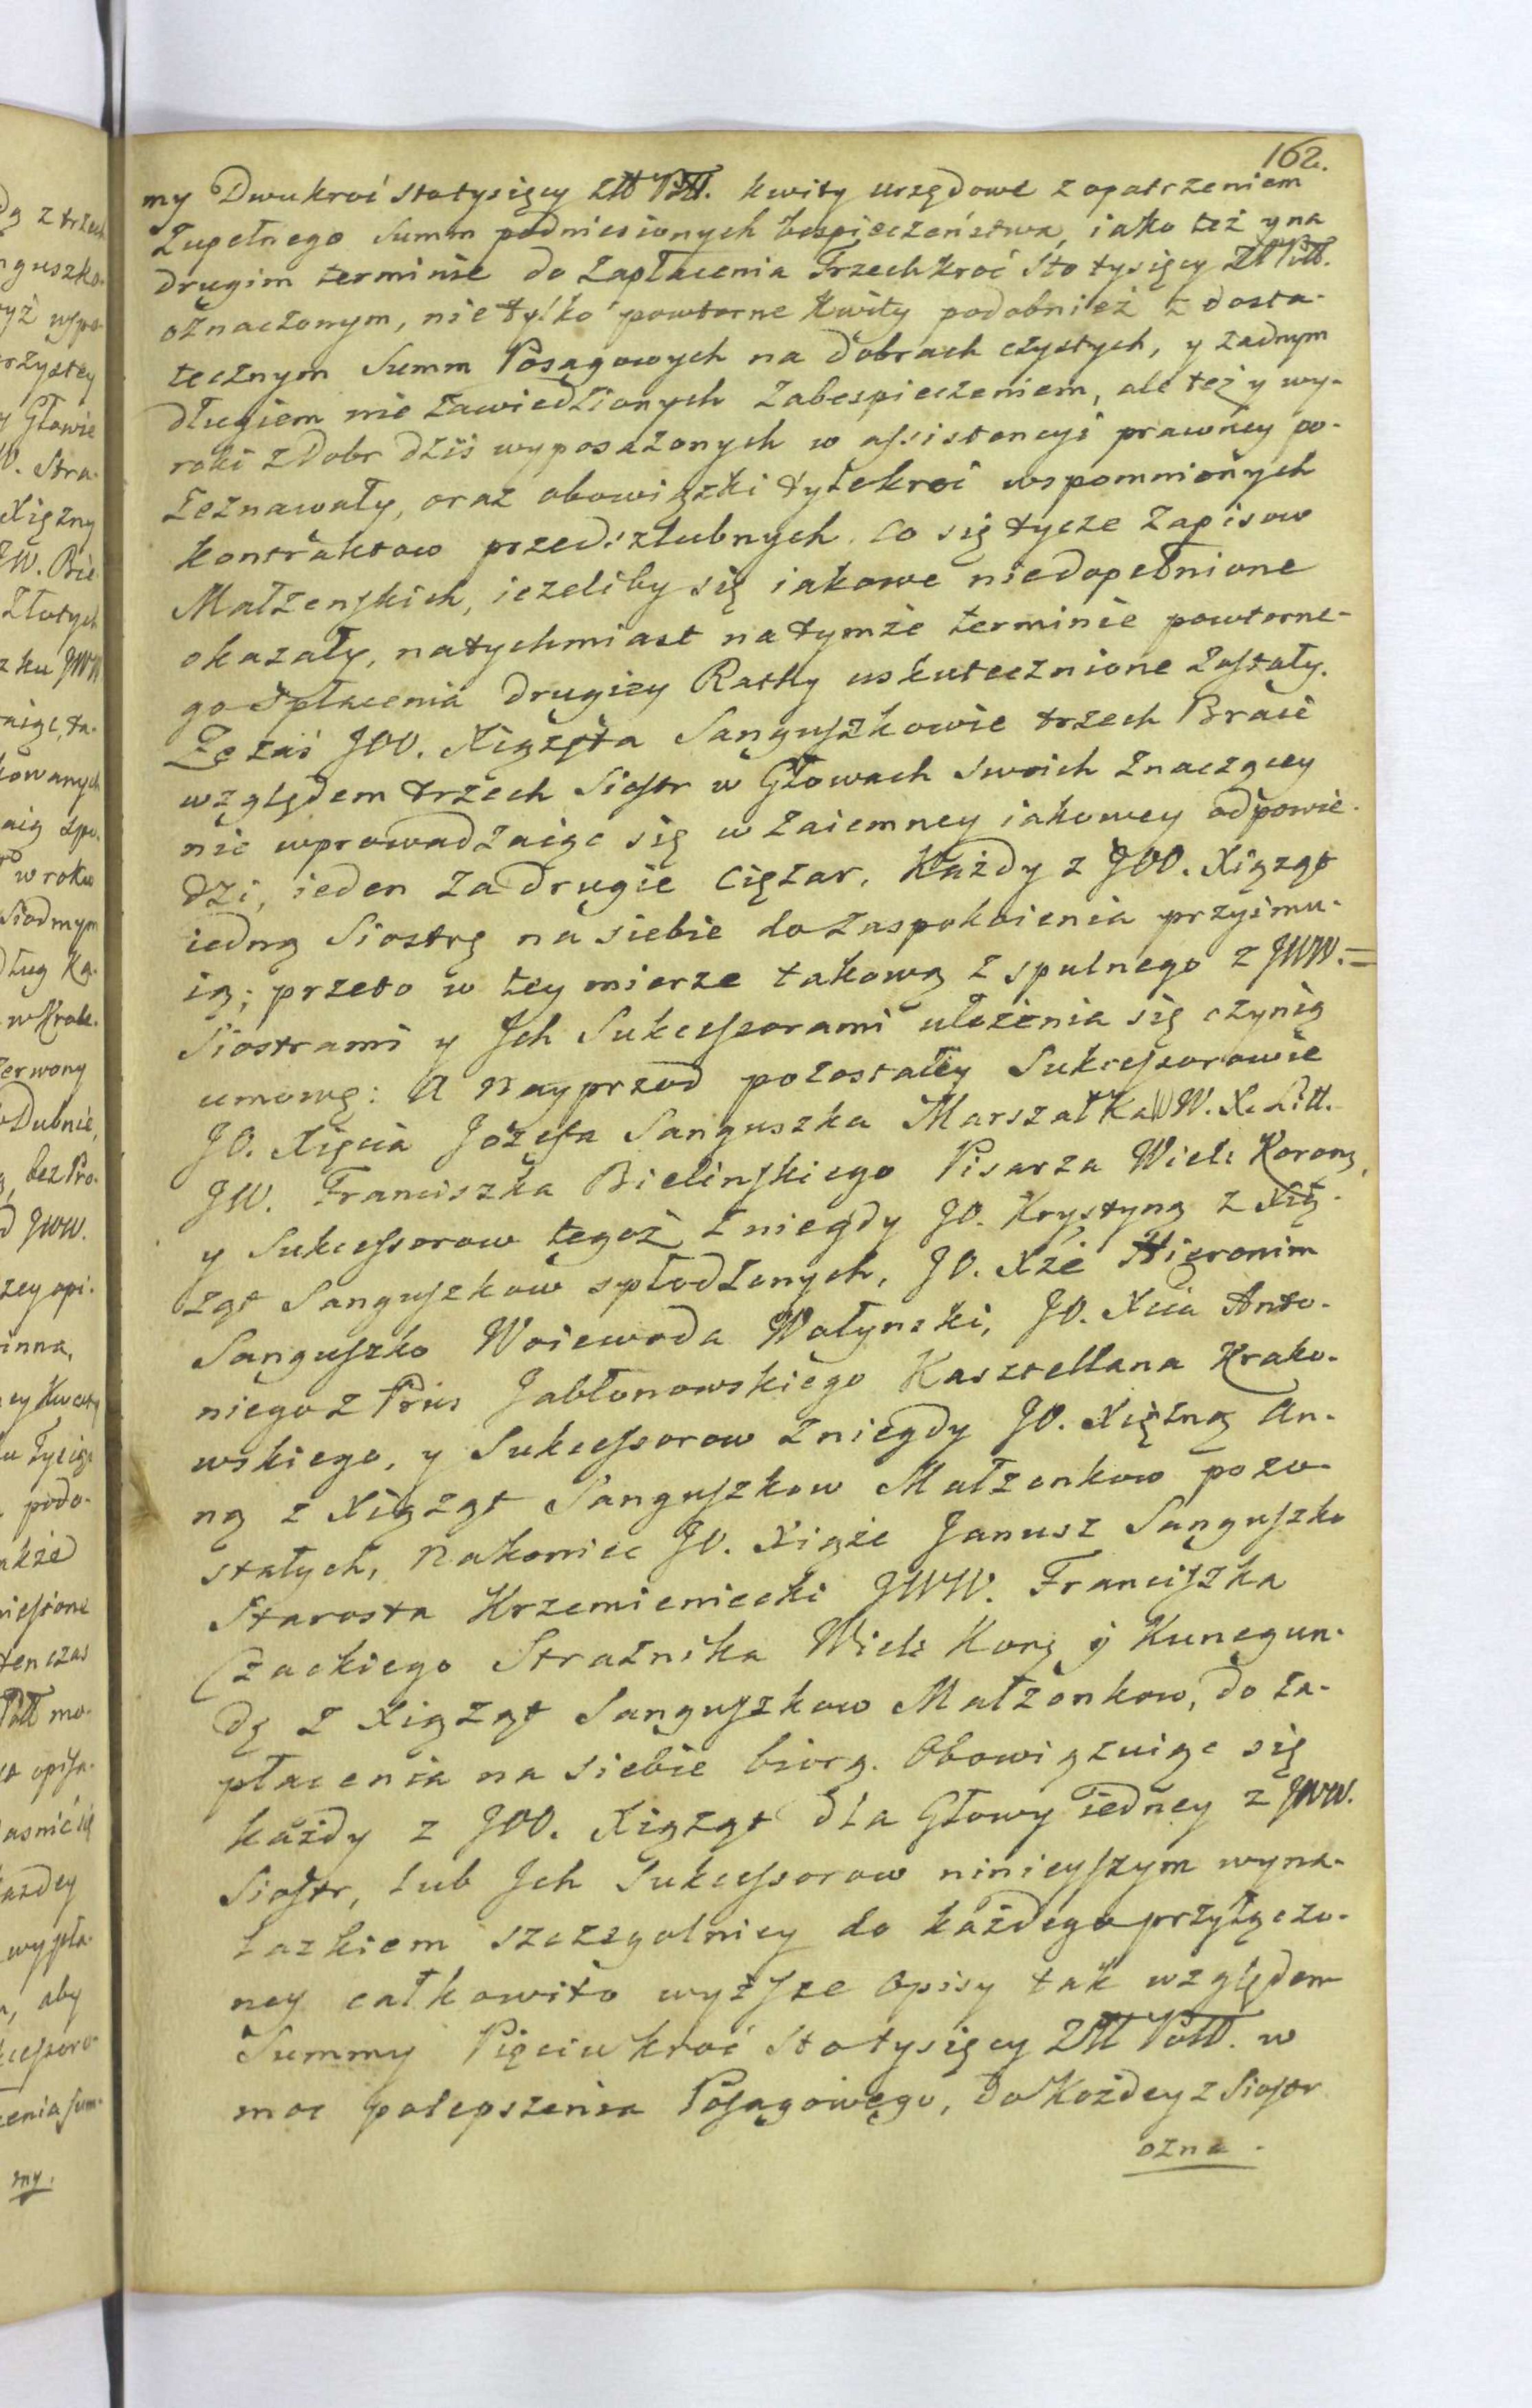 162.
my Dwukroć stotysięcy Złł Poll. kwity urzędowe z opatrzeniem
Zupełnego Summ podniesionych bespieczeństwa, iako też y na
drugim terminie do Zapłacenia Trzechkroć Sto tysięcy Złł Poll.
oznaczonym, nie tylko powtorne kwity podobnież z dosta-
tecznym Summ Posagowych na dobrach czystych, y żadnym
długiem nie zawiedzionych Zabespieczeniem, ale też y wy-
roki z Dobr dziś wyposażonych w assistencyi prawney po-
zeznawały, oraz obowiązki tylekroć wspomnionych
kontraktow przedszlubnych co się tycze Zapisow
Małżenskich, ieżeliby się iakowe niedopełnione
okazały, natychmiast na tymże terminie powtorne-
go spłacenia drugiey Ratty uskutecznione zostały.
Że zaś JOO. Xiążęta Sanguszkowie trzech Braci
względem trzech Siostr w Głowach swoich znaczącey
nie wprowadzaiąc się w zaiemney iakowey odpowie-
dzi, ieden za drugie ciężar, Każdy z JOO. Xiążąt
iedną Siostrę na siebie do zaspokoienia przyimu-
ią; przeto w tey mierze takową z spulnego z JWW. =
Siostrami y Jch Sukcessorami ułożenia się czynią
umowę: A Nayprzod pozostałey Sukcessorowie
JO. Xięcia Józefa Sanguszka Marszałka W. X. Litt.
JW. Franciszka Bielinskiego Pisarza Wiel: Korong
y Sukcessorow tegoż z niegdy JO. Krystyną z Xią-
ząt Sanguszkow spłodzonych, JO. Xże Hieronim
Sanguszko Woiewoda Wołynski, JO. Xcia Anto-
niego z Prus Jabłonowskiego Kasztellana Krako-
wskiego, y Sukcessorow z niegdy JO. Xiężną An-
ną z Xiążąt Sanguszkow Małżonkow pozo-
stałych, Nakoniec JO. Xiąże Janusz Sanguszko
Starosta Krzemieniecki JWW. Franciszka
Czackiego Strażnika Wiel: Korg y Kunegun-
dę z Xiążąt Sanguszkow Małżonkow, do za-
płacenia na siebie biorą. Obowiązuiąc się
każdy z JOO. Xiążąt dla Głowy iedney z JWW.
Siostr, lub Jch Sukcessorow ninieyszym wyna-
lazkiem szczegolniey do każdego przyłączo-
ney całkowito wyższe opisy tak względem
Summy Pięciukroć Stotysięcy Złł Poll. w
moc polepszenia Posagowego, do Każdey z Siostr
ozna-